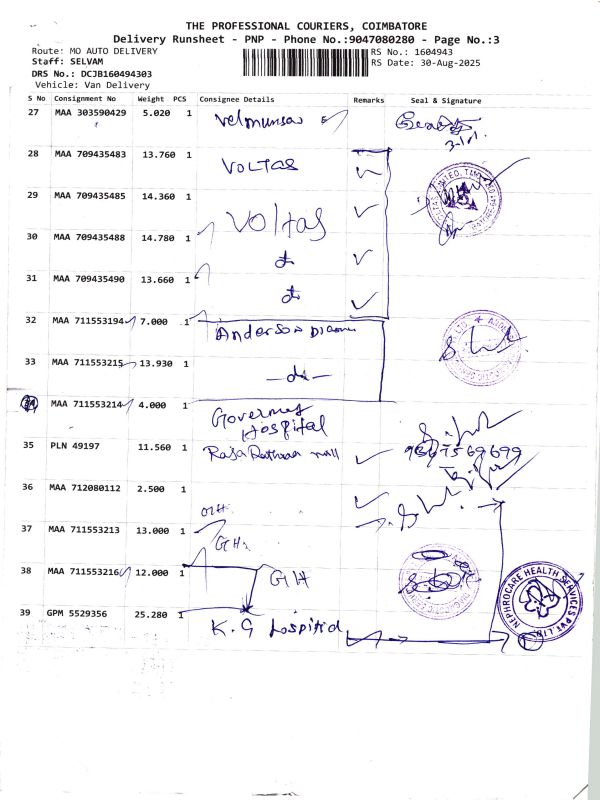 THE PROFESSIONAL COURIERS, COIMBATORE
Delivery Runsheet - PNP - Phone No.:9047080280 - Page No.:3
Route: MO AUTO DELIVERY RS No.: 1604943
Staff: SELVAM RS Date: 30-Aug-2025
DRS No.: DCJB160494303
Vehicle: Van Delivery
S No Consignment No Weight PCS Consignee Details Remarks Seal & Signature
27 MAA 303590429 5.020 1
28 MAA 709435483 13.760 1 VOLTAS
29 MAA 709435485 14.360 1 Voltas
30 MAA 709435488 14.780 1 do
31 MAA 709435490 13.660 1 do
32 MAA 711553194 7.000 1 Anderson
33 MAA 711553215 13.930 1 -do-
34 MAA 711553214 4.000 1 Hospital
35 PLN 49197 11.560 1 mall
36 MAA 712080112 2.500 1
37 MAA 711553213 13.000 1 GH
38 MAA 711553216 12.000 1 GH
39 GPM 5529356 25.280 1 K.G Hospital
NEPHROCARE HEALTH SERVICES PVT LTD